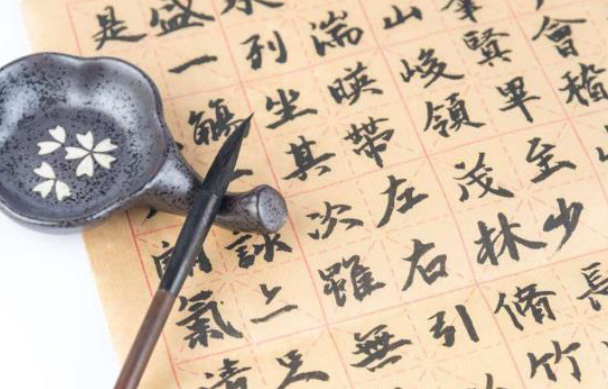 會稽
賢畢至少長
山峻領茂林脩竹
湍暎帶左右引
列坐其次雖無
盛一觴一詠亦足
是
氣清